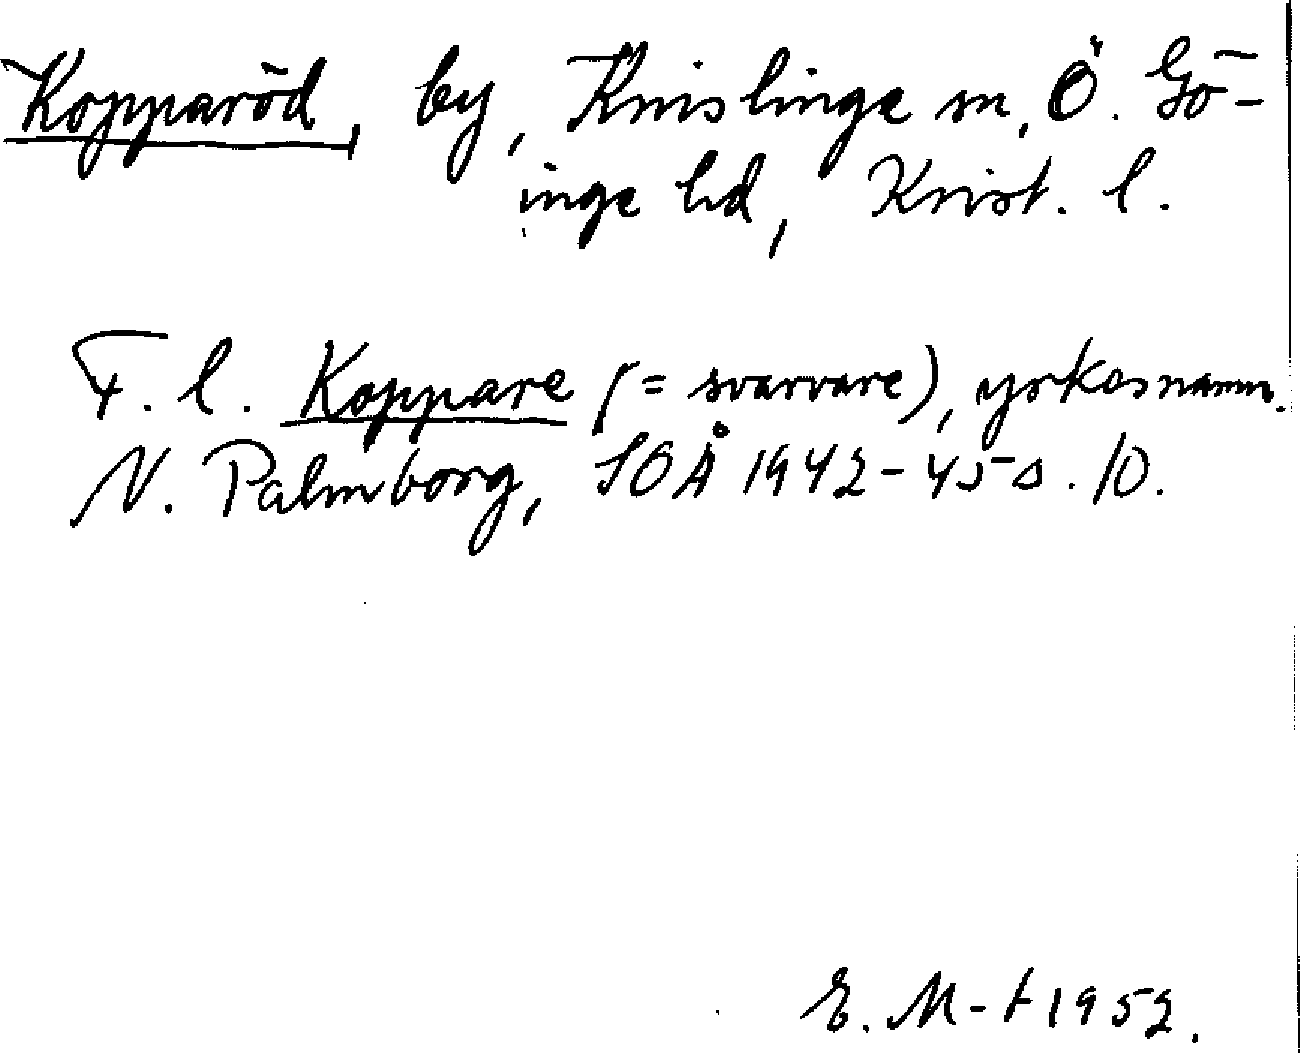 Kopparöd, by, Knislinge sn, Ö. Gö-
inge hd, Krist. l.
F. l. Koppare (= svarvare), yrkesnamn.
N. Palmborg, SOÅ 1942-45 s. 10.
E. M-t 1952.